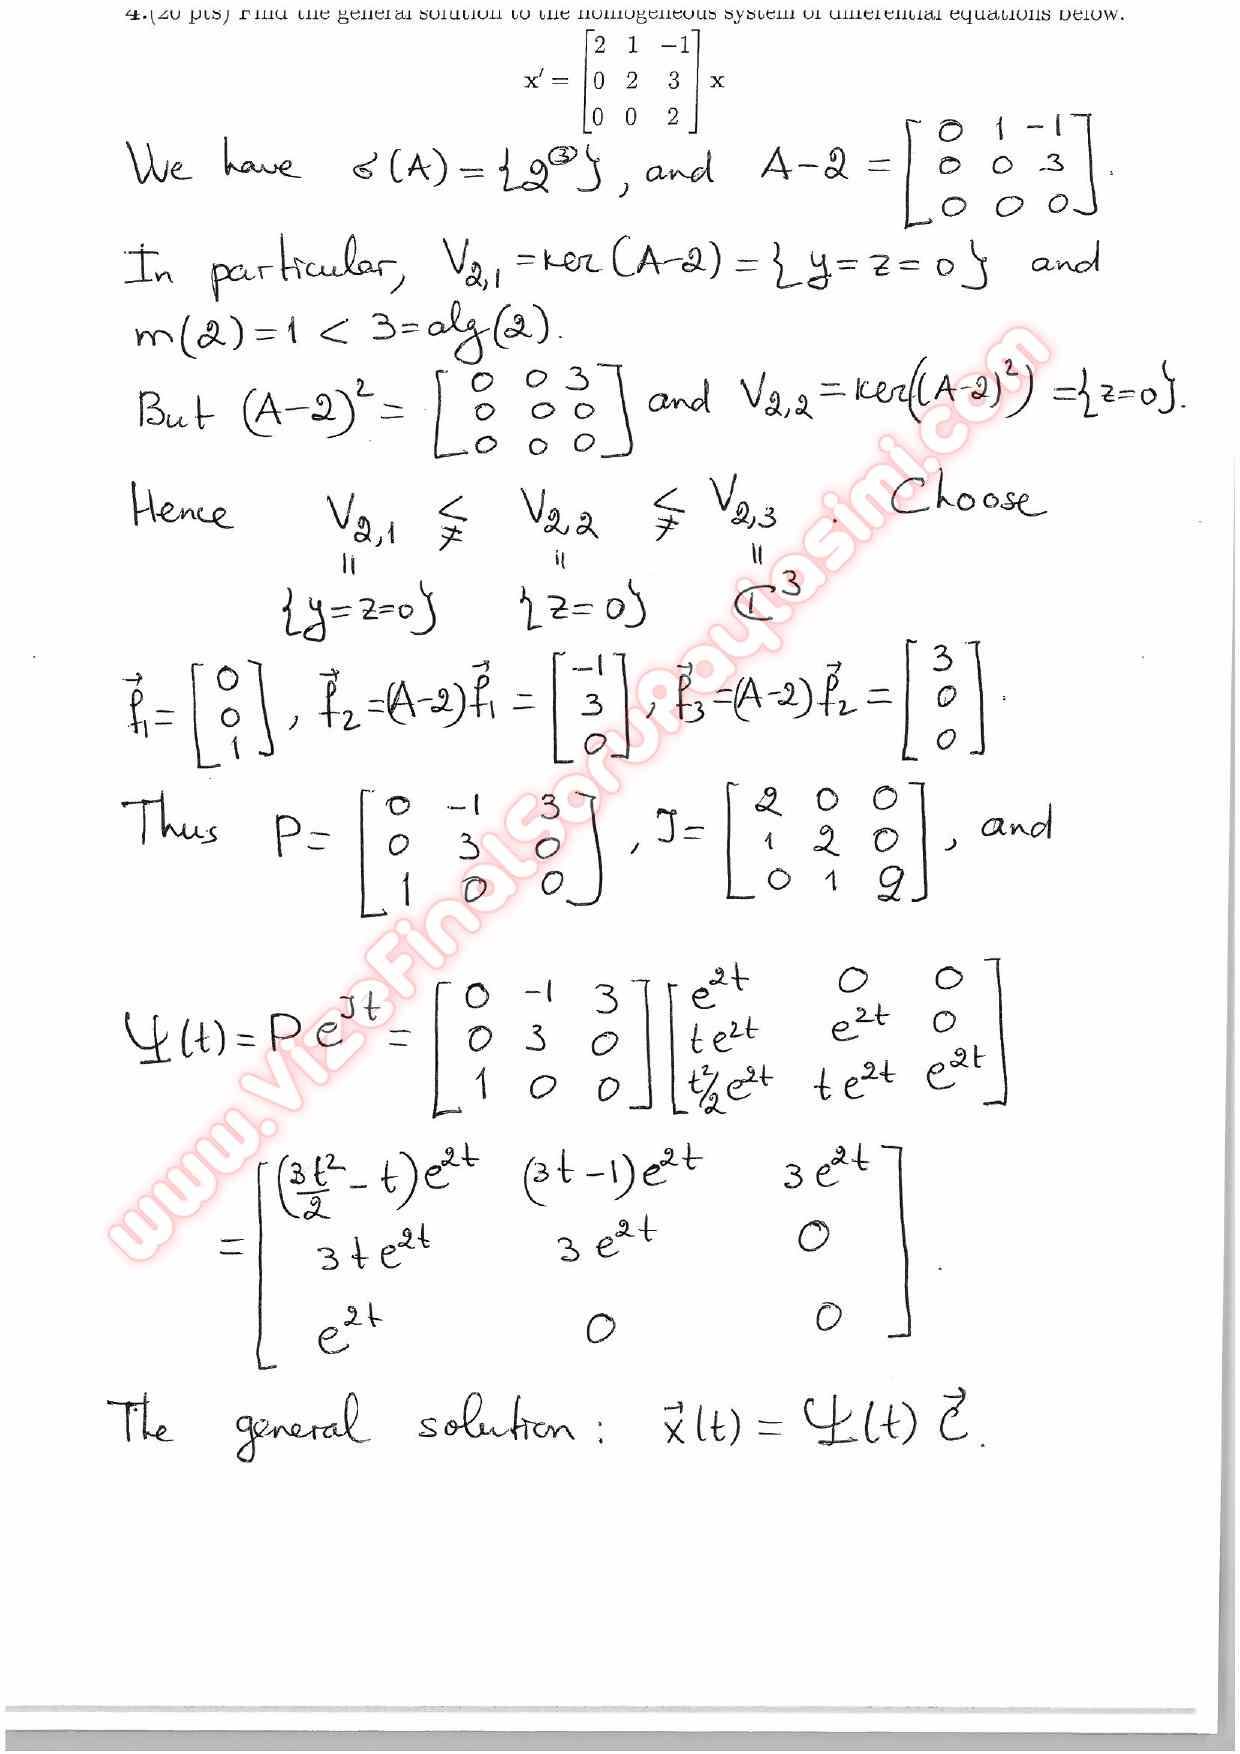 4.(20 pts) Find the general solution to the homogeneous system of differential equations below.
x′ = [2 1 −1; 0 2 3; 0 0 2] x
We have σ(A) = {2^③}, and A−2 = [0 1 −1; 0 0 3; 0 0 0].
In particular, V₂,₁ = ker(A−2) = {y=z=0} and
m(2) = 1 < 3 = alg(2).
But (A−2)² = [0 0 3; 0 0 0; 0 0 0] and V₂,₂ = ker((A−2)²) = {z=0}.
Hence V₂,₁ ⪇ V₂,₂ ⪇ V₂,₃. Choose
|| || ||
{y=z=0} {z=0} ℂ³
f⃗₁ = [0; 0; 1], f⃗₂ = (A−2)f⃗₁ = [−1; 3; 0], f⃗₃ = (A−2)f⃗₂ = [3; 0; 0].
Thus P = [0 −1 3; 0 3 0; 1 0 0], J = [2 0 0; 1 2 0; 0 1 2], and
Ψ(t) = P e^{Jt} = [0 −1 3; 0 3 0; 1 0 0] [e^{2t} 0 0; te^{2t} e^{2t} 0; t²/2 e^{2t} te^{2t} e^{2t}]
= [(3t²/2 − t)e^{2t} (3t−1)e^{2t} 3e^{2t}; 3te^{2t} 3e^{2t} 0; e^{2t} 0 0].
The general solution: x⃗(t) = Ψ(t) C⃗.
www.VizeFinalSoruPaylasimi.com